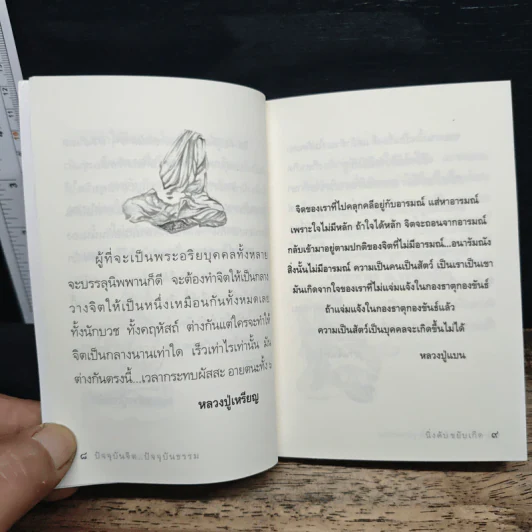 ผู้ที่จะเป็นพระอริยบุคคลทั้งหลาย
จะบรรลุนิพพานก็ดี จะต้องทำจิตให้เป็นกลาง
วางจิตให้เป็นหนึ่งเหมือนกันทั้งหมดเลย
ทั้งนักบวช ทั้งคฤหัสถ์ ต่างกันแต่ใครจะทำให้
จิตเป็นกลางนานเท่าใด เร็วเท่าไรเท่านั้น มัน
ต่างกันตรงนี้...เวลากระทบผัสสะ อายตนะทั้ง
หลวงปู่เหรียญ
๘ ปัจจุบันจิต..ปัจจุบันธรรม
จิตของเราที่ไปคลุกคลีอยู่กับอารมณ์ แส่หาอารมณ์
เพราะใจไม่มีหลัก ถ้าใจได้หลัก จิตจะถอนจากอารมณ์
กลับเข้ามาอยู่ตามปกติของจิตที่ไม่มีอารมณ์...อนารัมณัง
สิ่งนั้นไม่มีอารมณ์ ความเป็นคนเป็นสัตว์ เป็นเราเป็นเขา
มันเกิดจากใจของเราที่ไม่แจ่มแจ้งในกองธาตุกองขันธ์
ถ้าแจ่มแจ้งในกองธาตุกองขันธ์แล้ว
ความเป็นสัตว์เป็นบุคคลจะเกิดขึ้นไม่ได้
หลวงปู่แบน
นิ่งดับขยับเกิด ๙